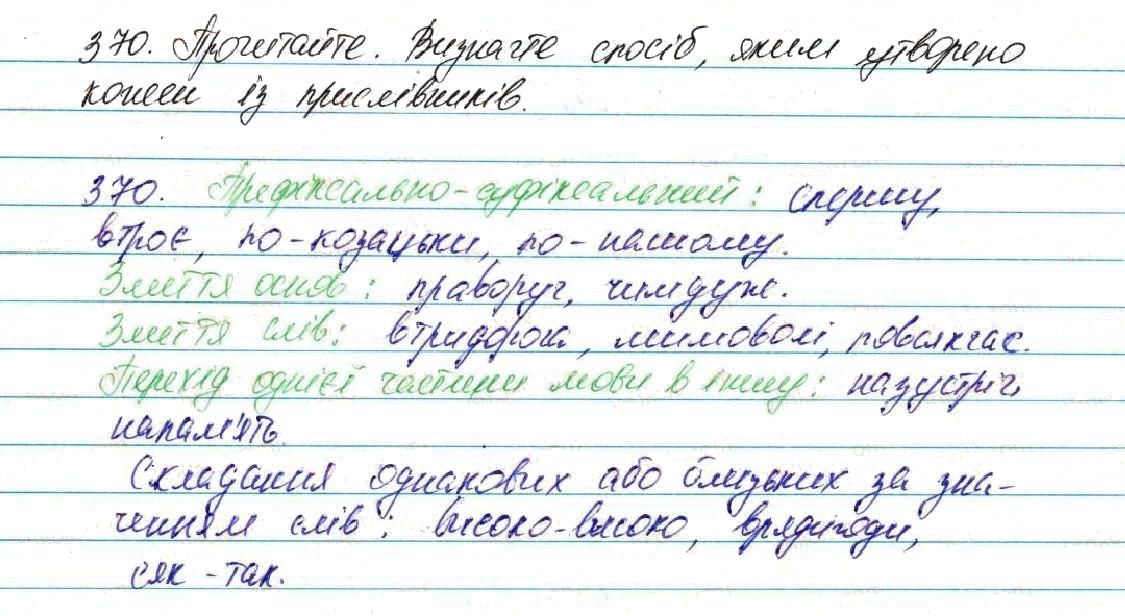 370. Прочитайте. Визначте спосіб, яким утворено
кожен із прислівників.
370. Префіксально-суфіксальний: спершу,
втроє, по-козацьки, по-нашому.
Злиття основ: праворуч, чимдуж.
Злиття слів: втридорога, мимоволі, повсякчас.
Перехід однієї частини мови в іншу: назустріч,
напам'ять.
Складання однакових або близьких за зна-
ченням слів: високо-високо, врядигоди,
сяк-так.